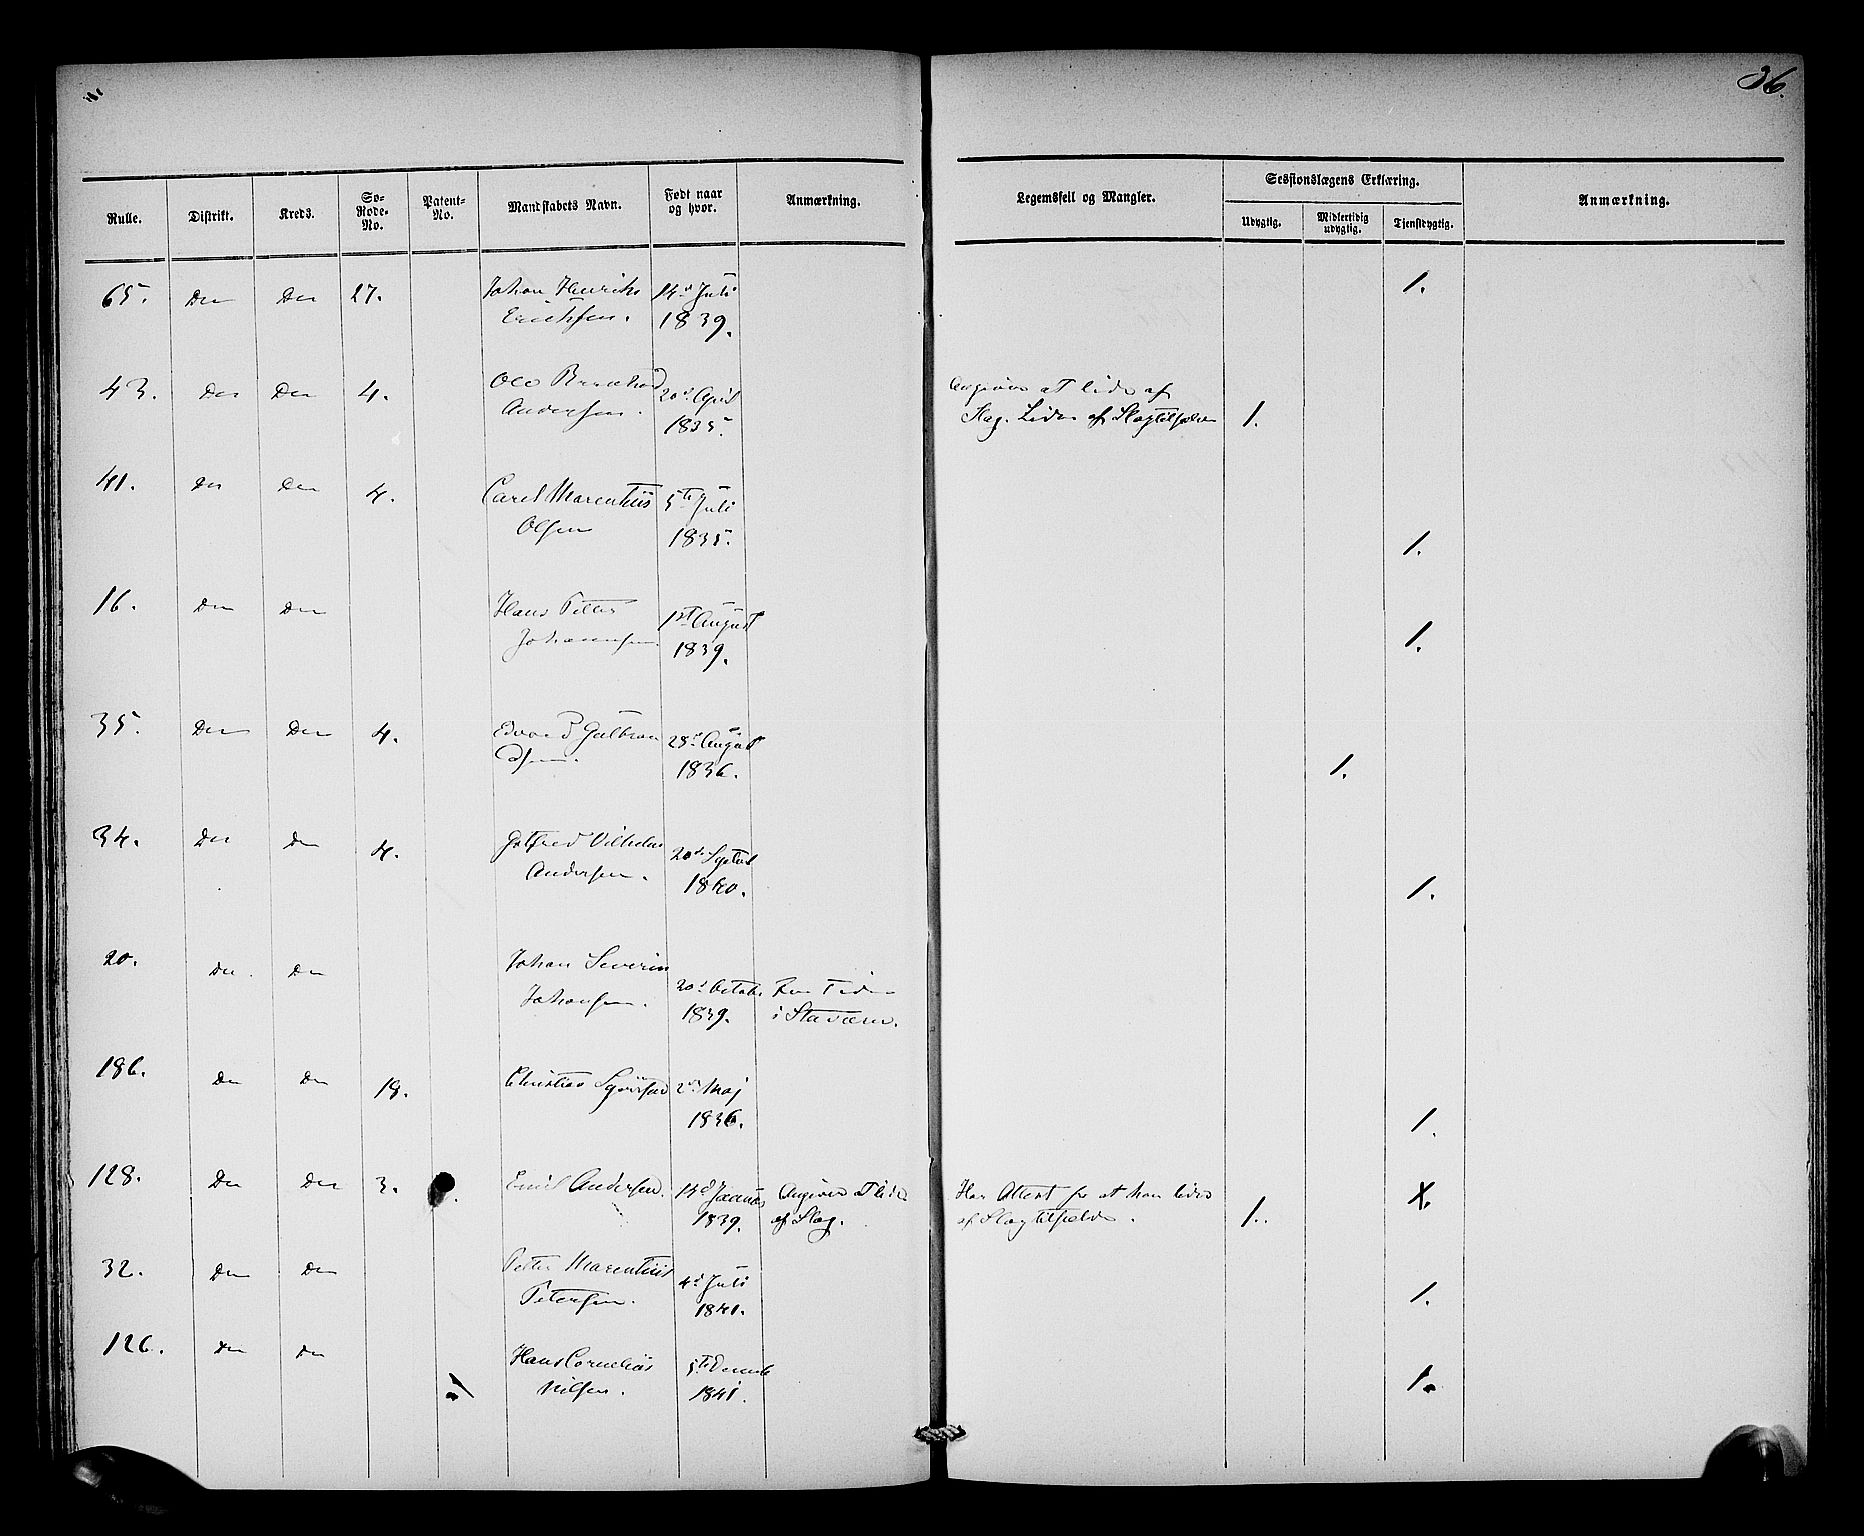 36.
Rulle. Distrikt. Kreds. Sø-Rode-No. Patent-No. Mandskabets Navn. Født naar og hvor. Anmærkning. Legemsfeil og Mangler. Sessionslægens Erklæring. Anmærkning.
Udygtig. Midlertidig udygtig. Tjenstdygtig.
65. Do Do 27. Johan Henriks 14d Juli 1.
Erichsen. 1839.
43. Do Do 4. Ole Bernhard 20d April Angiver at lide af
Andersen. 1835. Slag. Lider af Slagtilfælde 1.
41. Do Do 4. Carel Marentius 5te Juli
Olsen 1835. 1.
16. Do Do Hans Petter 1st August
Johannesen. 1839. 1.
35. Do Do 4. Edvard Gulbran 28d August
dsen. 1836. 1.
34. Do Do 4. Gotfred Vilhelm 20de Septbr
Andersen. 1840. 1.
20. Do Do Johan Severin 20d Octob.
Johansen. 1839. i Stavern.
186. Do Do 18. Christian 2den Maj
1836. 1.
128. Do Do 3. Emil Andersen. 14d Januar Angiver at lide Har Attest for at han lider
1839. af Slag. af Slagtilfælde. 1.
32. Do Do Petter Marentius 4d Juli
Petersen. 1841. 1.
126. Do Do Hans Cornelius 5te Decemb
Nilsen. 1841. 1.